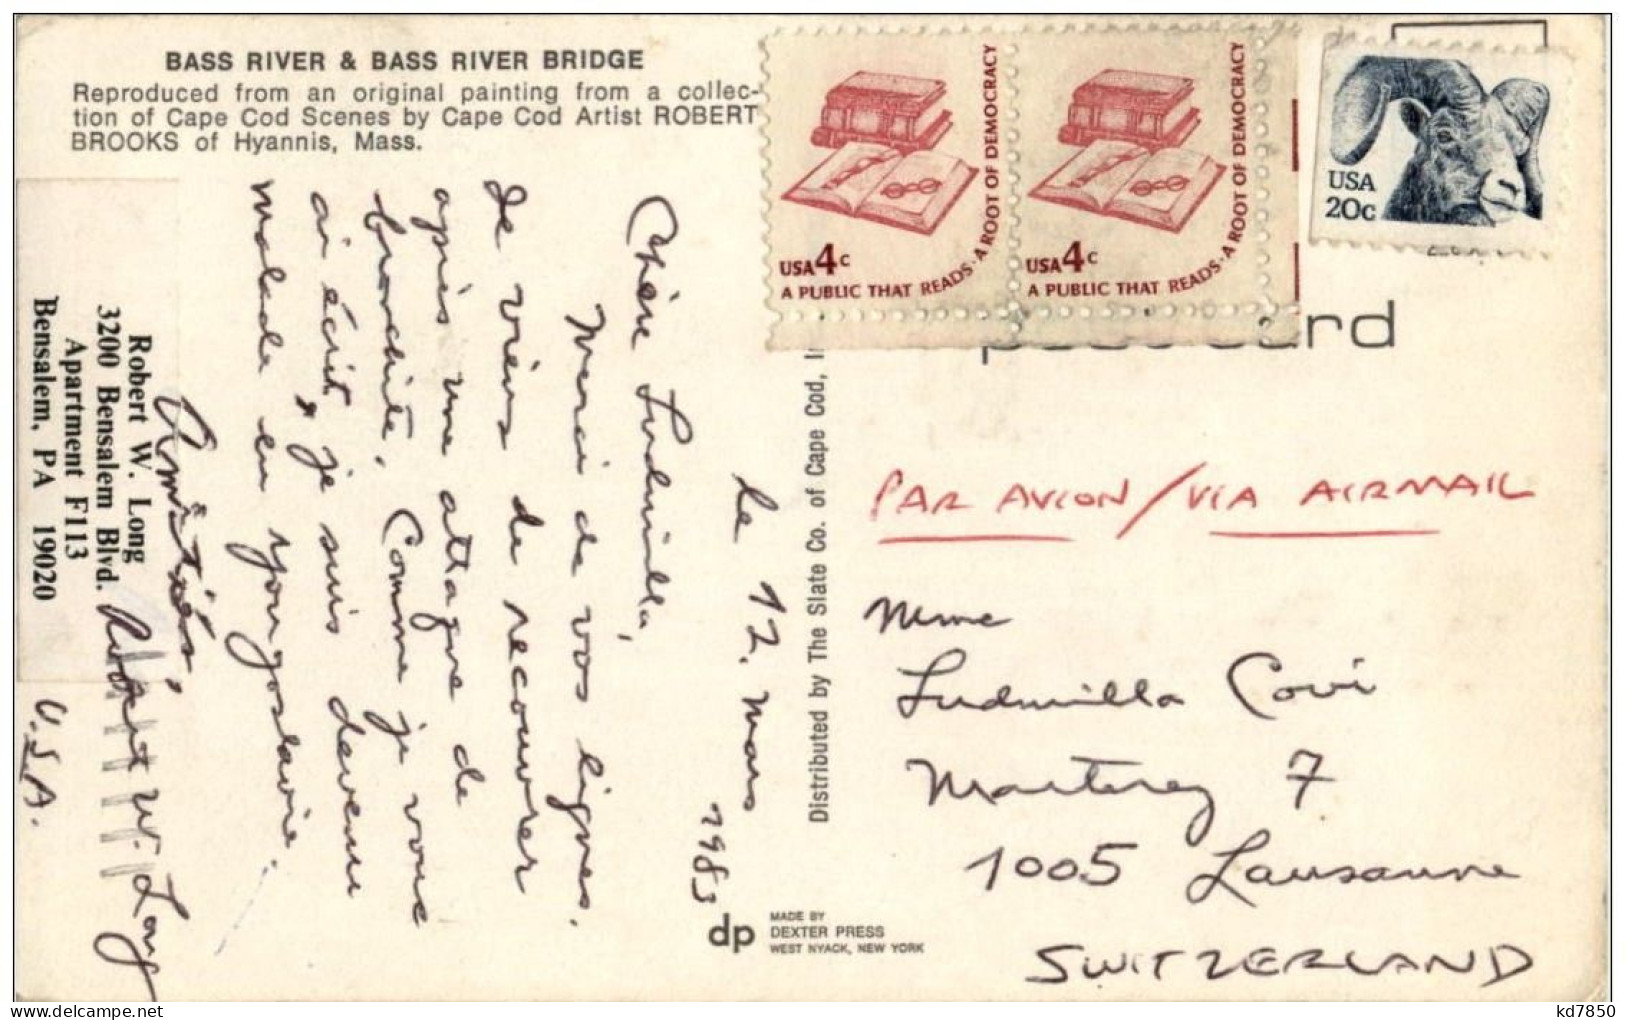 BASS RIVER & BASS RIVER BRIDGE
Reproduced from an original painting from a collec-
tion of Cape Cod Scenes by Cape Cod Artist ROBERT
BROOKS of Hyannis, Mass.
le 12. mars
1983
Chère Ludmilla,
Merci de vos lignes.
Je viens de recouvrer
après une attaque de
bronchite. Comme je vous
ai écrit, je suis devenu
malade en Yougoslavie.
Amitiés,
Robert W. Long
Robert W. Long
3200 Bensalem Blvd.
Apartment F113
Bensalem, PA 19020
U.S.A.
Distributed by The Slate Co. of Cape Cod,
dp
MADE BY
DEXTER PRESS
WEST NYACK, NEW YORK
USA 4c
A PUBLIC THAT READS · A ROOT OF DEMOCRACY
USA 4c
A PUBLIC THAT READS · A ROOT OF DEMOCRACY
USA
20c
PAR AVION / VIA AIRMAIL
Mme
Ludmilla Covi
Monterey 7
1005 Lausanne
SWITZERLAND
kd7850